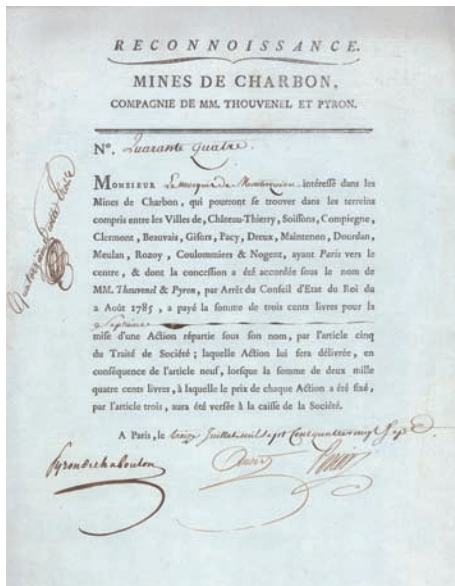 RECONNOISSANCE.
MINES DE CHARBON,
COMPAGNIE DE MM. THOUVENEL ET PYRON.
N°. Quarante Quatre.
MONSIEUR Le marquis de intéressé dans les
Mines de Charbon, qui pourront se trouver dans les terreins
compris entre les Villes de, Château-Thierry, Soissons, Compiegne,
Clermont, Beauvais, Gisors, Pacy, Dreux, Maintenon, Dourdan,
Meulan, Rozoy, Coulommiers & Nogent, ayant Paris vers le
centre, & dont la concession a été accordée sous le nom de
MM. Thouvenel & Pyron, par Arrêt du Conseil d'Etat du Roi du
2 Août 1785, a payé la somme de trois cents livres pour la
Septieme
mise d'une Action répartie sous son nom, par l'article cinq
du Traité de Société ; laquelle Action lui sera délivrée, en
conséquence de l'article neuf, lorsque la somme de deux mille
quatre cents livres, à laquelle le prix de chaque Action a été fixé,
par l'article trois, aura été versée à la caisse de la Société.
A Paris, le treize Juillet mil sept Cent quatre vingt Sept.
Pyron de Chaboulon